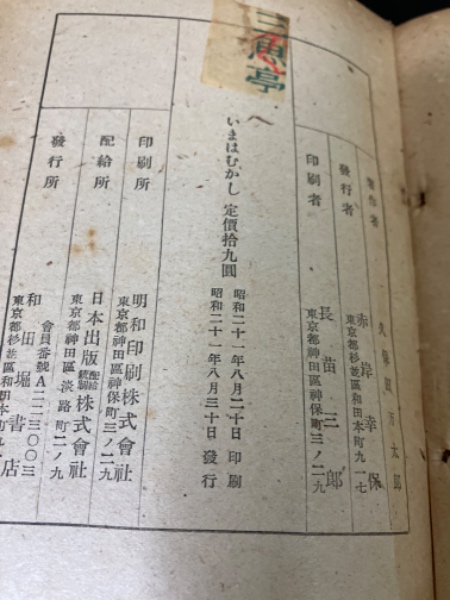 三魚亭
著作者 久保田万太郎
發行者 東京都杉並區和田本町九一七
赤岸幸保
印刷者 東京都神田區神保町三ノ二九
長苗三郎
いまはむかし 定價拾九圓
昭和二十一年八月二十日 印刷
昭和二十一年八月三十日 發行
印刷所 東京都神田區神保町三ノ二九
明和印刷株式會社
配給所 東京都神田區淡路町二ノ九
日本出版配給統制株式會社
會員番號A二二三〇〇三
發行所 東京都杉並區和田本町九
和田堀書店